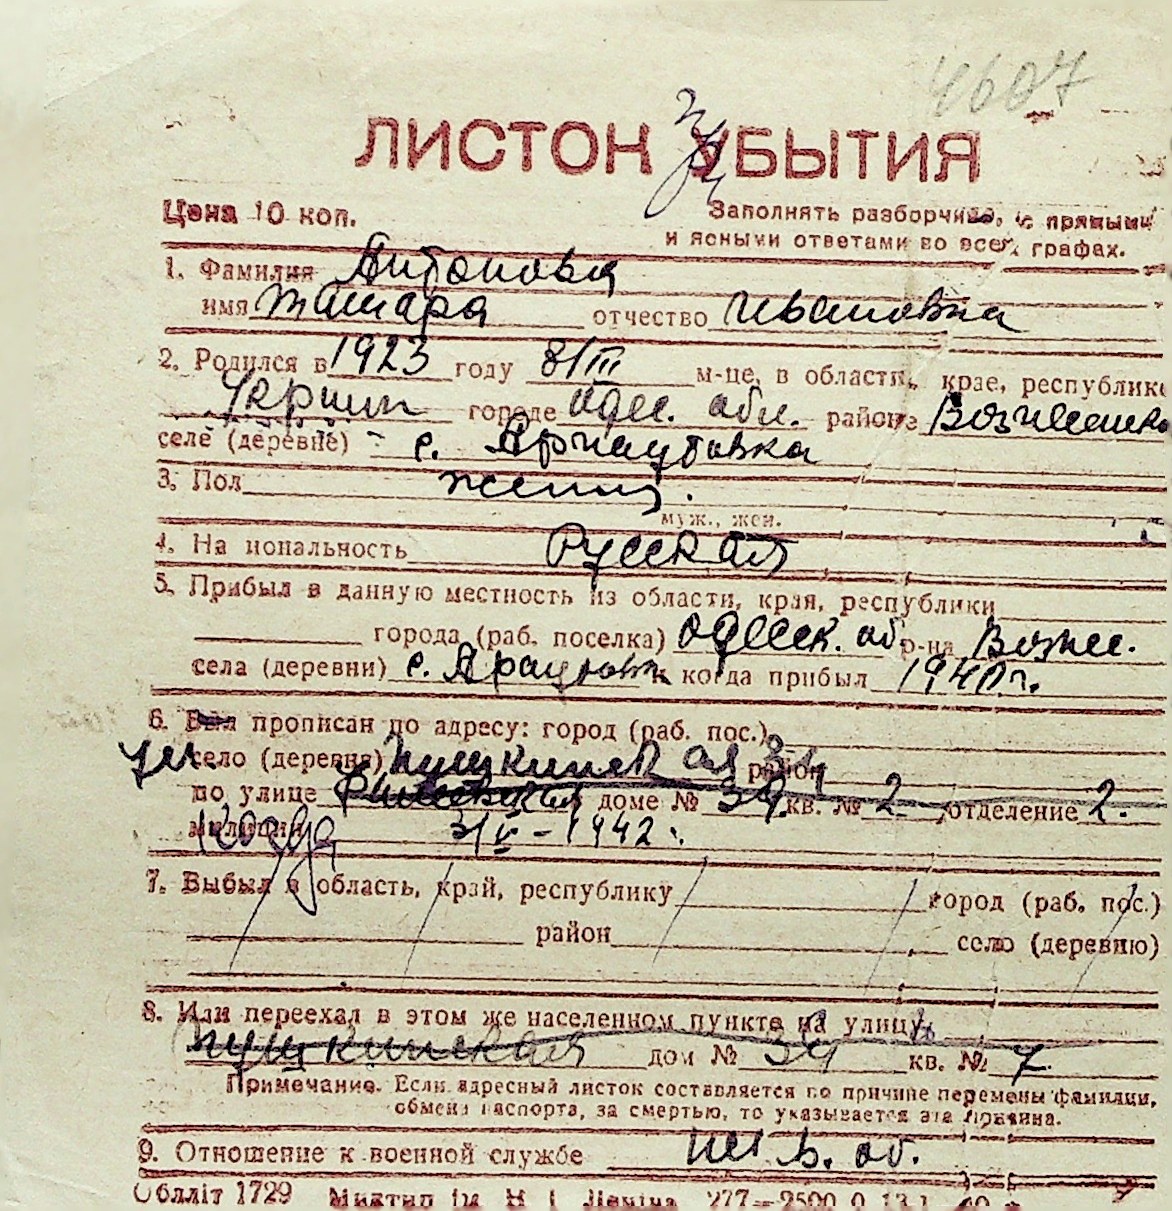 4607
ЛИСТОК УБЫТИЯ
Цена 10 коп.
Заполнять разборчиво, с прямыми
и ясными ответами во всех графах.
1. Фамилия Антонова
имя Тамара отчество Ивановна
2. Родился в 1923 году 8/III м-це, в области, крае, республике
Украин городе Одес. обл. районе Вознесенск
селе (деревне) - с. Арнаутовка
3. Пол женщ.
муж., жен.
4. На иональность Русская
5. Прибыл в данную местность из области, края, республики
города (раб. поселка) Одесск. об р-на Вознес.
села (деревни) с. и когда прибыл 1940 г.
6. Был прописан по адресу: город (раб. пос.)
ул. село (деревня) Пушкинская 34 район
по улице доме № 34 кв. № 2 отделение 2.
милиции когда 3/V - 1942.
7. Выбыл в область, край, республику город (раб. пос.)
район село (деревню)
8. Или переехал в этом же населенном пункте на улицу
Пушкинская дом № 34 кв. № 7.
Примечание. Если адресный листок составляется по причине перемены фамилии,
обмена паспорта, за смертью, то указывается эта причина.
9. Отношение к военной службе не в. об.
Облліт 1729 Миктип ім. Леніна 277—2500 0